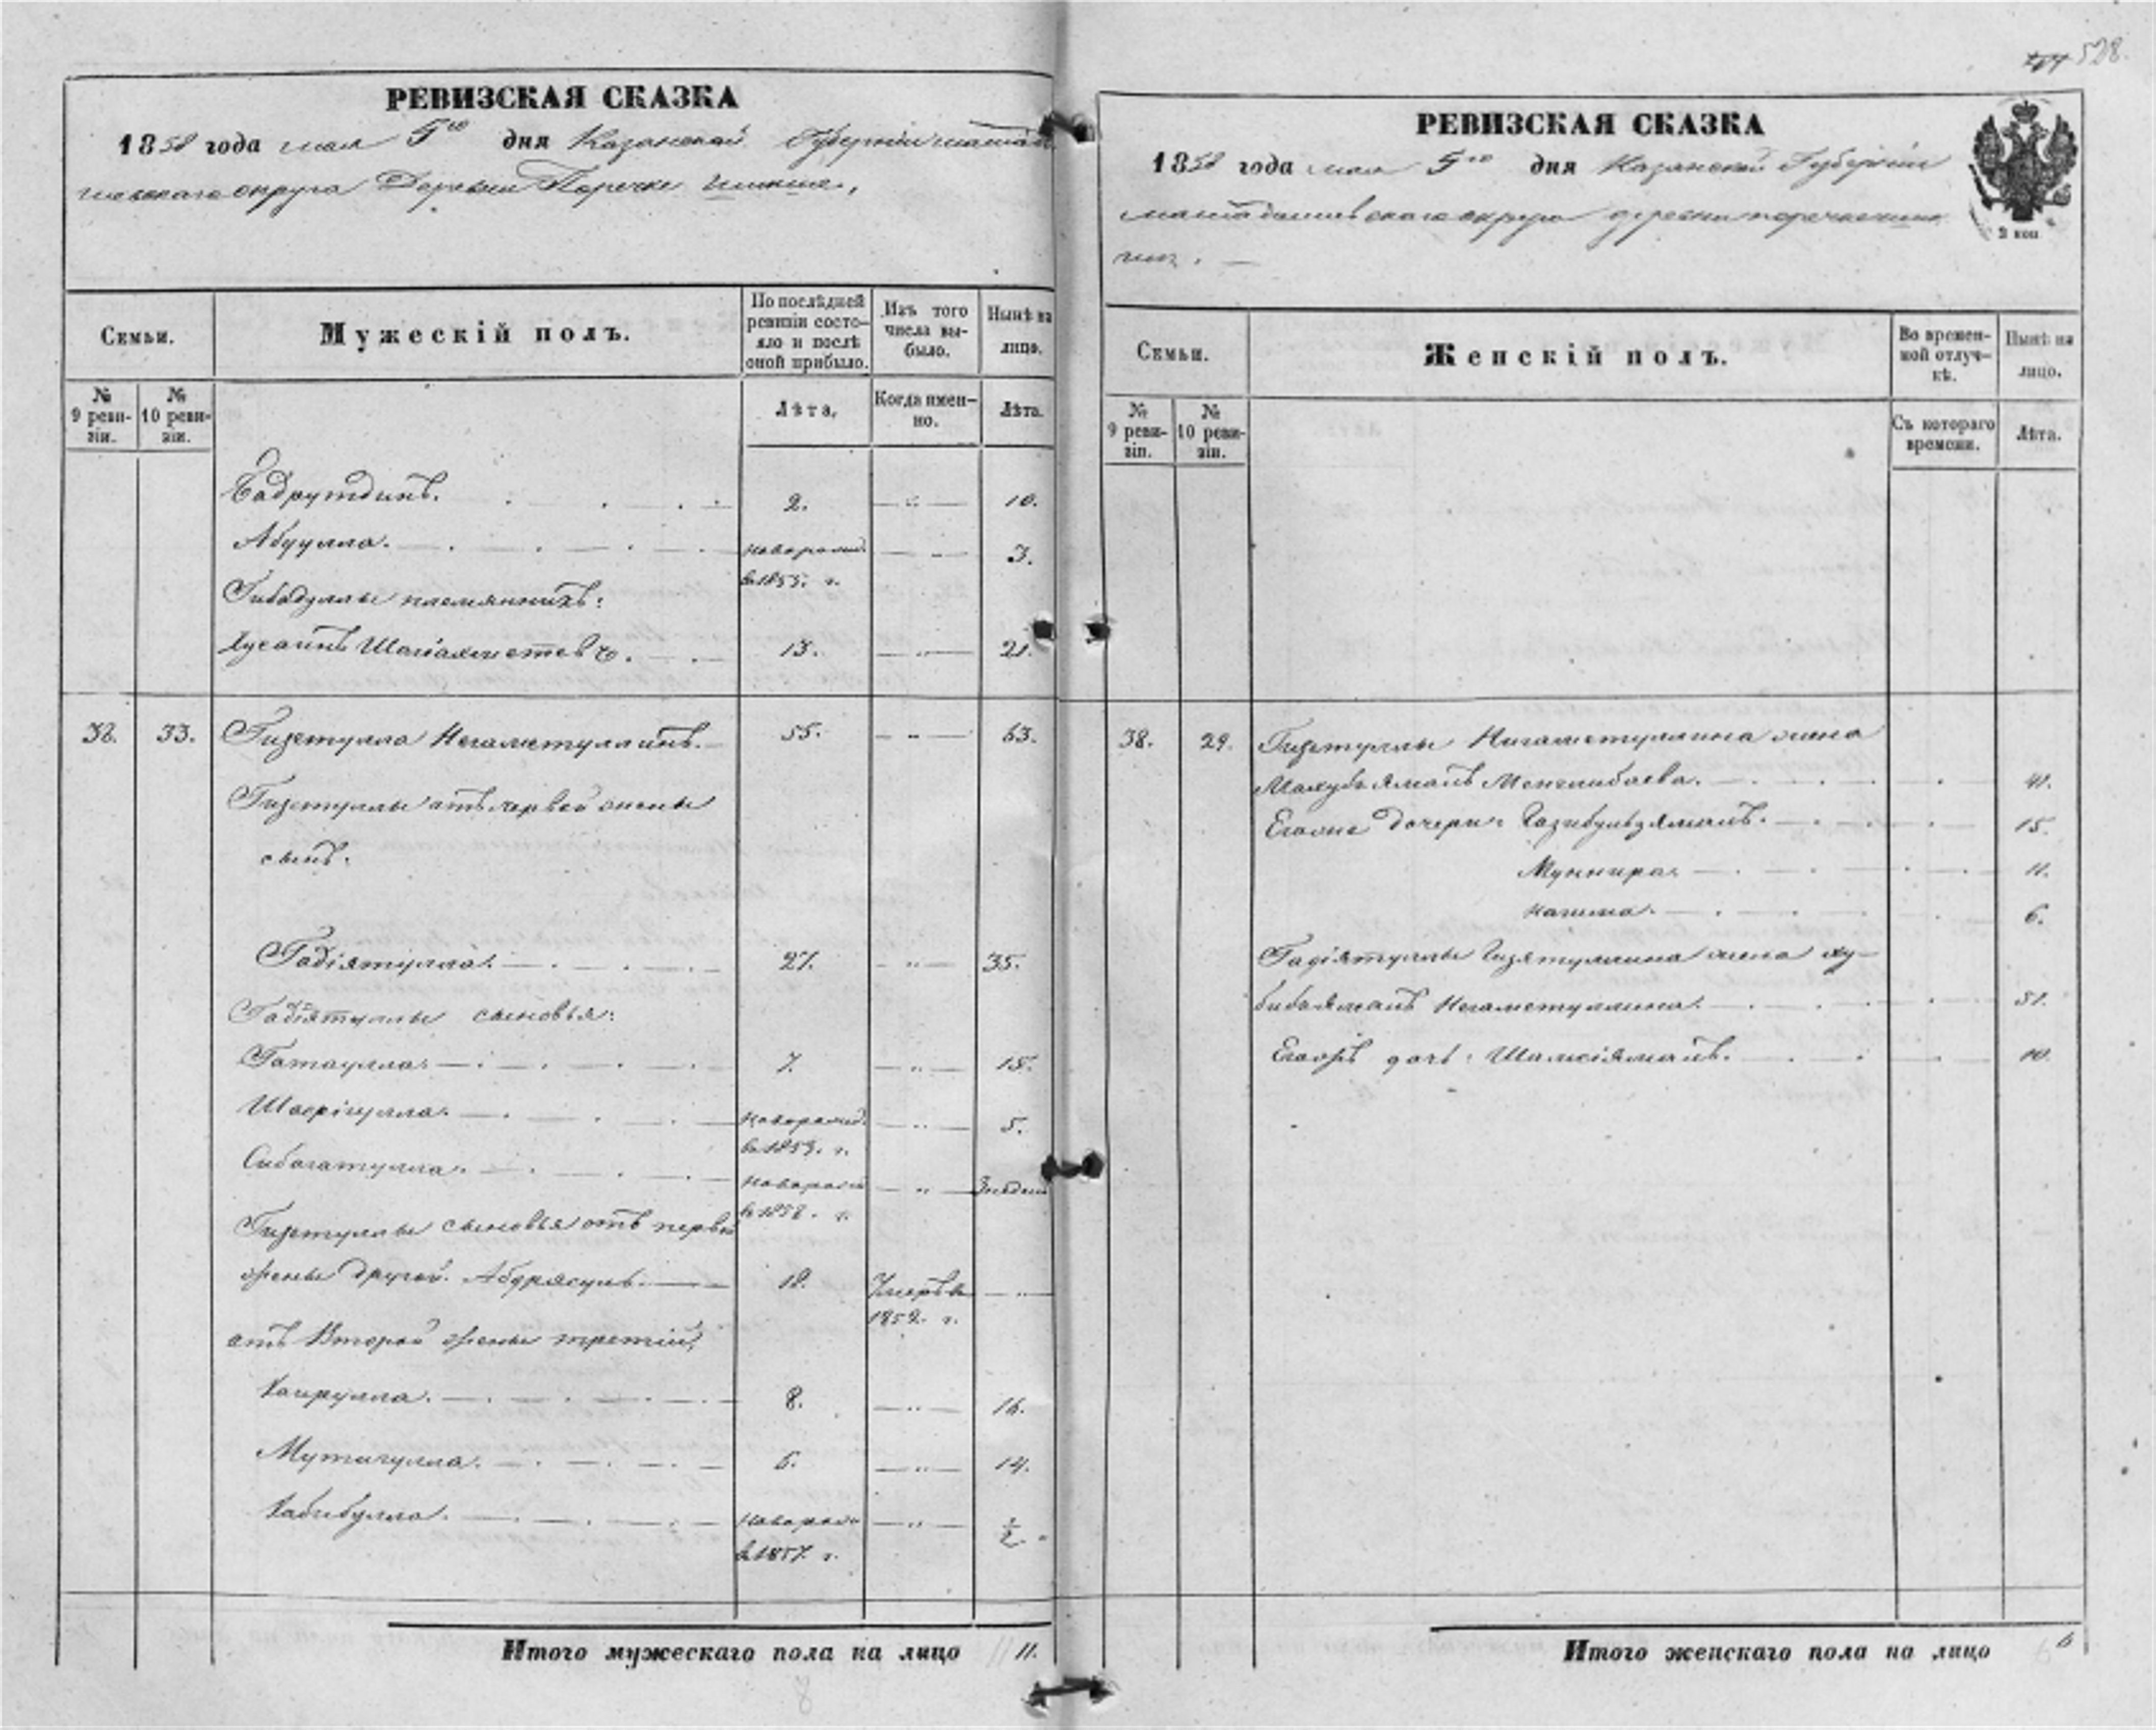 528.
РЕВИЗСКАЯ СКАЗКА
1858 года мая 5го дня Казанской Губернии мамады-
шскаго округа Деревни Поречке
Семьи.
Мужескій полъ.
По послѣдней ревизіи состо-яло и послѣ оной прибыло.
Изъ того числа вы-было.
Нынѣ на лицо.
№ 9 реви-зіи.
№ 10 реви-зіи.
Лѣта.
Когда имен-но.
Лѣта.
Бадрутдинъ. 2. — „ — 10.
Абдулла. новорожд. — „ — 3.
в 1855. г.
Гибадуллы племянникъ:
Хусаинъ Шагіахметевъ. 13. — „ — 21.
38. 33. Гизетулла Негаметуллинъ. 55. — „ — 63.
Гизетуллы отъ первой жены
сынъ.
Гадіятулла. 27. — „ — 35.
Гадіятуллы сыновья:
Гатаулла. 7. — „ — 15.
Шафигулла. новорожд. — „ — 5.
в 1853. г.
Сибагатулла. новорож — „ — 3 недели
в 1858. г.
Гизетуллы сыновья отъ первой
жены другой. Абдрясулъ. 18. Умеръ в — „ —
1852. г.
отъ Второй жены третій,
Хаирулла. 8. — „ — 16.
Мутигулла. 6. — „ — 14.
Хабибулла. новорож — „ — ½
в 1857 г.
Итого мужескаго пола на лицо 11.
РЕВИЗСКАЯ СКАЗКА
1858 года мая 5го дня Казанской Губерніи
мамадышскаго округа деревни поречке
2 коп
Семьи.
Женскій полъ.
Во времен-ной отлуч-кѣ.
Нынѣ на лицо.
№ 9 реви-зіи.
№ 10 реви-зіи.
Съ котораго времени.
Лѣта.
38. 29. Гизетуллы Нигаметуллина жена
Махубъямалъ Менглибаева. 41.
Егоже дочери: Газибульзямалъ. 15.
Муннира. 11.
Нагима. 6.
Гадіятуллы Гизятуллина жена ху-
бибьямалъ Негаметуллина. 31.
Егожъ дочь: Шамсіямалъ. 10.
Итого женскаго пола на лицо 6